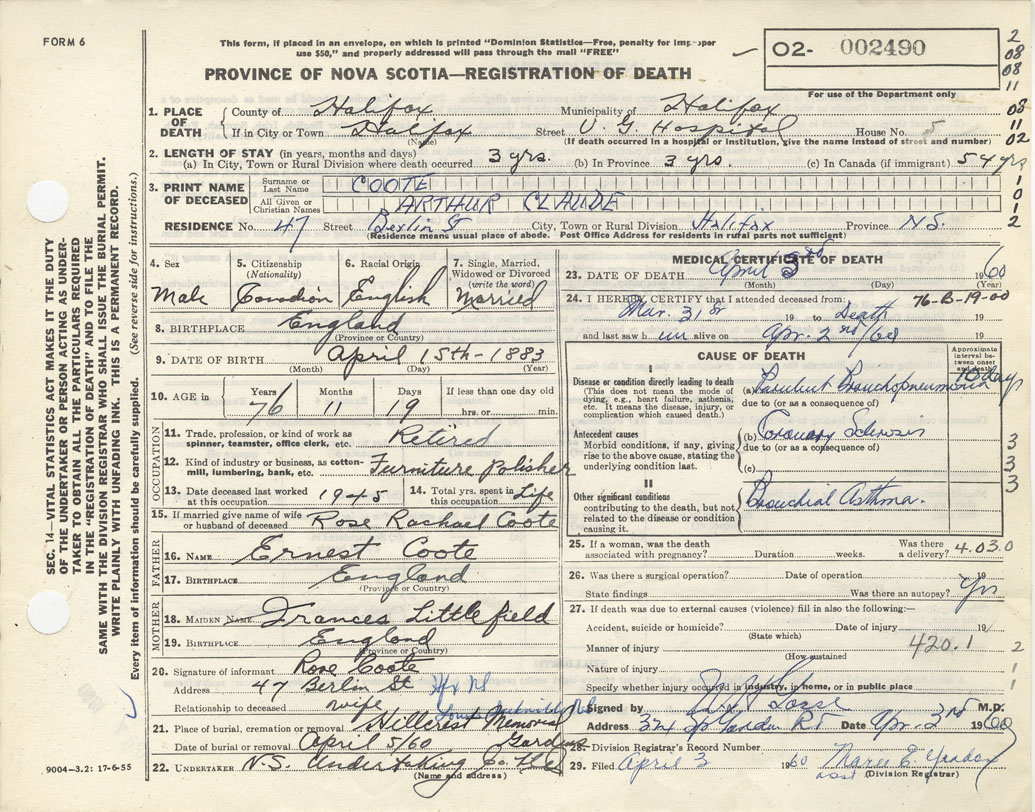 FORM 6
This form, if placed in an envelope, on which is printed "Dominion Statistics—Free, penalty for improper
use $50," and properly addressed will pass through the mail "FREE"
02- 002490
For use of the Department only
PROVINCE OF NOVA SCOTIA—REGISTRATION OF DEATH
2
08
08
11
08
11
02
1
0
1
2
1. PLACE OF DEATH
County of Halifax Municipality of Halifax
If in City or Town Halifax Street V. G. Hospital House No. 5
(Name) (If death occurred in a hospital or institution, give the name instead of street and number)
2. LENGTH OF STAY (in years, months and days)
(a) In City, Town or Rural Division where death occurred 3 yrs. (b) In Province 3 yrs. (c) In Canada (if immigrant) 54 yrs
3. PRINT NAME OF DECEASED
Surname or Last Name COOTE
All Given or Christian Names ARTHUR CLAUDE
RESIDENCE No. 47 Street Berlin St City, Town or Rural Division Halifax Province N.S.
(Residence means usual place of abode. Post Office Address for residents in rural parts not sufficient)
4. Sex Male
5. Citizenship (Nationality) Canadian
6. Racial Origin English
7. Single, Married, Widowed or Divorced (write the word) Married
8. BIRTHPLACE England
(Province or Country)
9. DATE OF BIRTH April 15th - 1883
(Month) (Day) (Year)
10. AGE in Years 76 Months 11 Days 19 If less than one day old hrs. or min.
OCCUPATION
11. Trade, profession, or kind of work as spinner, teamster, office clerk, etc. Retired
12. Kind of industry or business, as cotton-mill, lumbering, bank, etc. Furniture polisher
13. Date deceased last worked at this occupation 1945
14. Total yrs. spent in this occupation Life
15. If married give name of wife or husband of deceased Rose Rachael Coote
FATHER
16. NAME Ernest Coote
17. BIRTHPLACE England
(Province or Country)
MOTHER
18. MAIDEN NAME Frances Littlefield
19. BIRTHPLACE England
(Province or Country)
20. Signature of informant Rose Coote
Address 47 Berlin St Hfx NS
Relationship to deceased wife
21. Place of burial, cremation or removal Hillcrest Memorial Gardens
Date of burial or removal April 5/60
22. UNDERTAKER N.S. Undertaking Co.
(Name and address)
MEDICAL CERTIFICATE OF DEATH
23. DATE OF DEATH April 3rd 1960
(Month) (Day) (Year)
24. I HEREBY CERTIFY that I attended deceased from: 76-B-19-00
Mar. 31 19 to Death 19
and last saw h im alive on Apr. 2nd/60 19
CAUSE OF DEATH
Approximate interval between onset and death
I
Disease or condition directly leading to death
(This does not mean the mode of dying, e.g., heart failure, asthenia, etc. It means the disease, injury, or complication which caused death.)
(a) Bronchopneumonia
due to (or as a consequence of)
Antecedent causes
Morbid conditions, if any, giving rise to the above cause, stating the underlying condition last.
(b) Coronary Sclerosis
due to (or as a consequence of)
(c)
II
Other significant conditions
contributing to the death, but not related to the disease or condition causing it.
Bronchial Asthma.
3
3
3
3
25. If a woman, was the death associated with pregnancy? Duration weeks. Was there a delivery? 4.03.0
26. Was there a surgical operation? Date of operation 19
State findings Was there an autopsy? Yes
27. If death was due to external causes (violence) fill in also the following:—
Accident, suicide or homicide? Date of injury 19
(State which)
Manner of injury 420.1 2
(How sustained
Nature of injury 1
Specify whether injury occurred in industry, in home, or in public place 1
Signed by M.D.
Address Date Apr. 3rd 1960
28. Division Registrar's Record Number
29. Filed April 3 1960
asst (Division Registrar)
SEC. 14—VITAL STATISTICS ACT MAKES IT THE DUTY
OF THE UNDERTAKER OR PERSON ACTING AS UNDER-
TAKER TO OBTAIN ALL THE PARTICULARS REQUIRED
IN THE "REGISTRATION OF DEATH" AND TO FILE THE
SAME WITH THE DIVISION REGISTRAR WHO SHALL ISSUE THE BURIAL PERMIT.
WRITE PLAINLY WITH UNFADING INK. THIS IS A PERMANENT RECORD.
Every item of information should be carefully supplied. (See reverse side for instructions.)
9004—3.2: 17-6-55